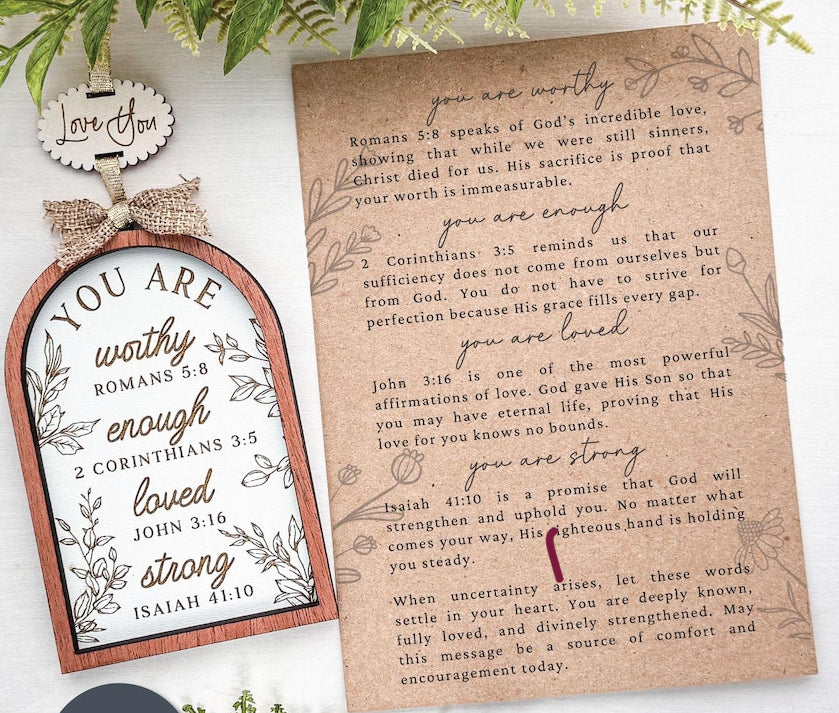 Love You
YOU ARE
worthy
ROMANS 5:8
enough
2 CORINTHIANS 3:5
loved
JOHN 3:16
strong
ISAIAH 41:10
you are worthy
Romans 5:8 speaks of God's incredible love,
showing that while we were still sinners,
Christ died for us. His sacrifice is proof that
your worth is immeasurable.
you are enough
2 Corinthians 3:5 reminds us that our
sufficiency does not come from ourselves but
from God. You do not have to strive for
perfection because His grace fills every gap.
you are loved
John 3:16 is one of the most powerful
affirmations of love. God gave His Son so that
you may have eternal life, proving that His
love for you knows no bounds.
you are strong
Isaiah 41:10 is a promise that God will
strengthen and uphold you. No matter what
comes your way, His ighteous hand is holding
you steady.
When uncertainty arises, let these words
settle in your heart. You are deeply known,
fully loved, and divinely strengthened. May
this message be a source of comfort and
encouragement today.